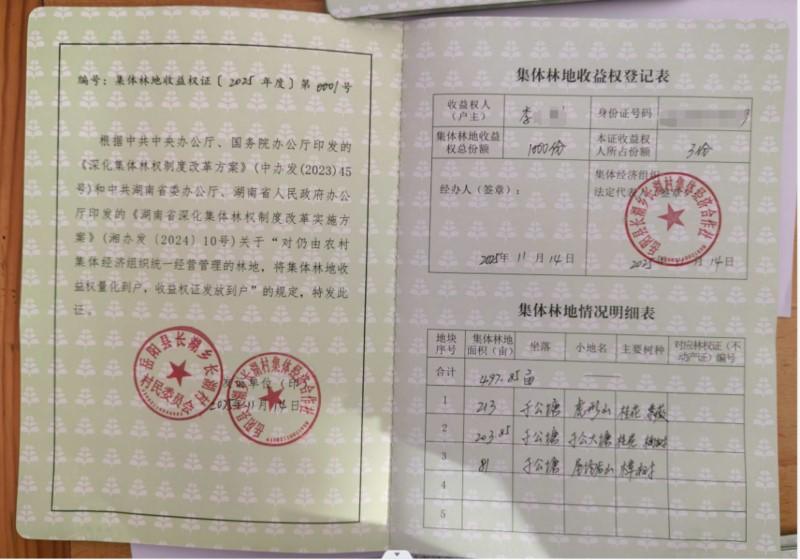 编号：集体林地收益权证〔2025年度〕第0001号
根据中共中央办公厅、国务院办公厅印发的
《深化集体林权制度改革方案》(中办发(2023)45
号)和中共湖南省委办公厅、湖南省人民政府办公
厅印发的《湖南省深化集体林权制度改革实施方
案》(湘办发〔2024〕10号)关于“对仍由农村
集体经济组织统一经营管理的林地，将集体林地收
益权量化到户，收益权证发放到户”的规定，特发此
证。
岳阳县长湖乡长湖村
村民委员会
岳阳县长湖乡长湖村集体经济合作社
单位（印
2025年11月14日
集体林地收益权登记表
收益权人（户主） 李 身份证号码
集体林地收益权总份额 1000份 本证收益权人所占份额 3份
经办人（签章）： 集体经济组织
法定代表 签章
岳阳县长湖乡长湖村集体经济合作社
2025年11月14日 2025 月14日
集体林地情况明细表
地块序号 集体林地面积（亩） 坐落 小地名 主要树种 对应林权证（不动产证）编号
合计 497.85亩
1 213 千公塘 虎形山 桂花
2 203.85 千公塘 千公大塘 桂花
3 81 千公塘 樟树
4
5